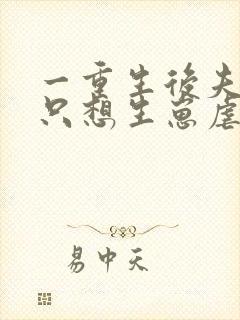 一重生后夫
只想生崽虐
易中天